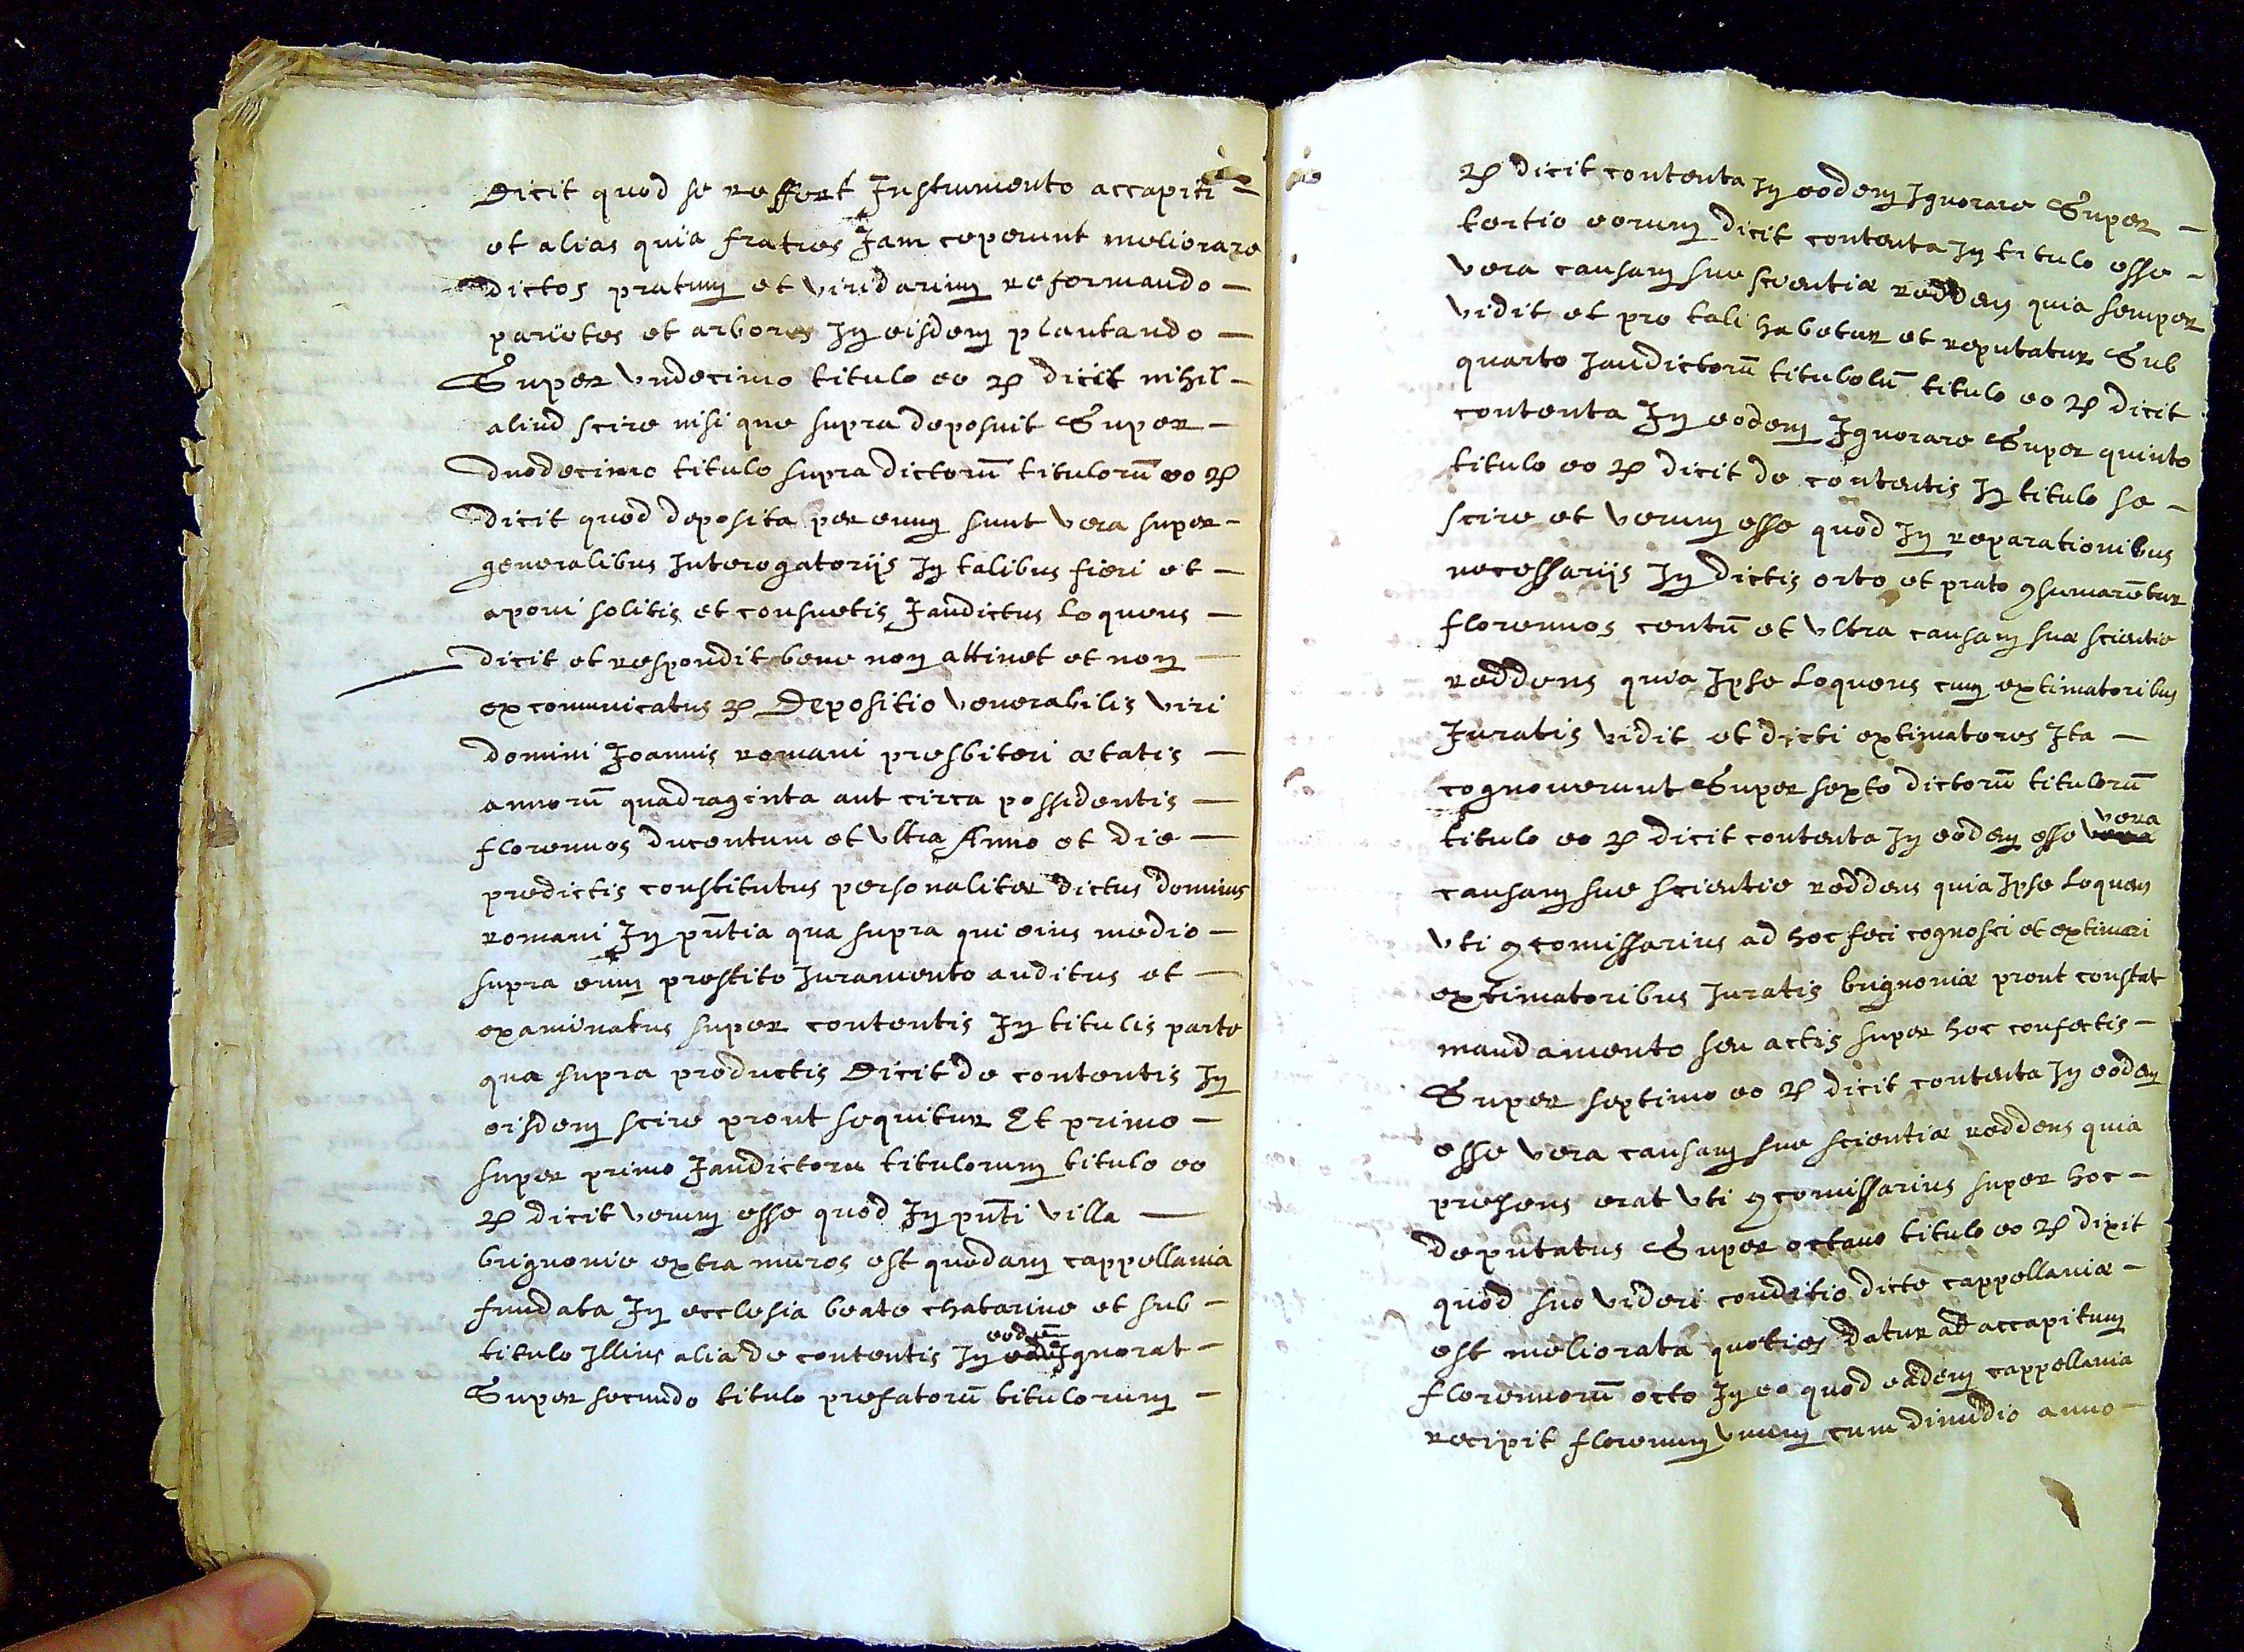 Dicit quod se reffert Instrumento accapiti –
et alias quia fratres Jam ceperunt meliorare
dictos pratum et viridarium reformando –
parietes et arbores In eisdem plantando –
Super undecimo titulo eo R dicit nihil –
aliud scire nisi que supra deposuit Super –
duodecimo titulo supra dictorū titulorū eo R
Dicit quod deposita per eum sunt vera super –
generalibus Interogatorijs In talibus fieri et –
aponi solitis et consuetis Jandictus loquens –
dicit et respondit bene non attinet et non –
excomunicatus R Depositio venerabilis viri
domini Joannis romani presbiteri ætatis –
annorū quadraginta aut circa possidentis –
florennos ducentum et ultra Anno et die –
predictis constitutus personaliter dictus dominus
romani In pn̄tia qua supra qui eius medio –
supra eum prestito Juramento auditus et –
examinatus super contentis In titulis parte
qua supra productis Dicit de contentis In
eisdem scire prout sequitur Et primo –
super primo Jandictoru titulorum titulo eo
R dicit verum esse quod In pn̄ti villa –
brignonie extra muros est quedam cappellania
fundata In ecclesia beate chatarine et sub –
titulo Illius alia de contentis In eodem Ignorat –
Super secundo titulo prefatorū titulorum –
R dicit contenta In eodem Ignorare Super –
tertio eorum dicit contenta In titulo esse –
vera causam sue scientiæ redden quia semper
vidit et pro tali habetur et reputatur Sub
quarto Jandictorū titulolū titulo eo R dicit
contenta In eodem Ignorare Super quinto
titulo eo R dicit de contentis In titulo se –
scire et verum esse quod In reparationibus
necessarijs In dictis orto et prato 9sumarētur
florennos centū et ultra causam suæ scientie
reddens quia Ipse loquens cum extimatoribus
Juratis vidit et dicti extimatores Ita –
cognouerunt Super sexto dictorū titulorū
titulo eo R dicit contenta In eodem esse vera
causam sue scientie reddens quia Ipse loquen
uti 9comissarius ad hoc feci cognosci et extimari
extimatoribus Juratis brignoniæ prout constat
mandamento seu actis super hoc confectis –
Super septimo eo R dicit contenta In eodem
esse vera causam sue scientiæ reddens quia
presens erat uti 9comissarius super hoc –
deputatus Super octavo titulo eo R dixit
quod suo videri conditio dicte cappellaniæ –
est meliorata quoties datur ad accapitum
florennorū octo In eo quod eadem cappellania
recipit florenum unum cum dimidio anno –